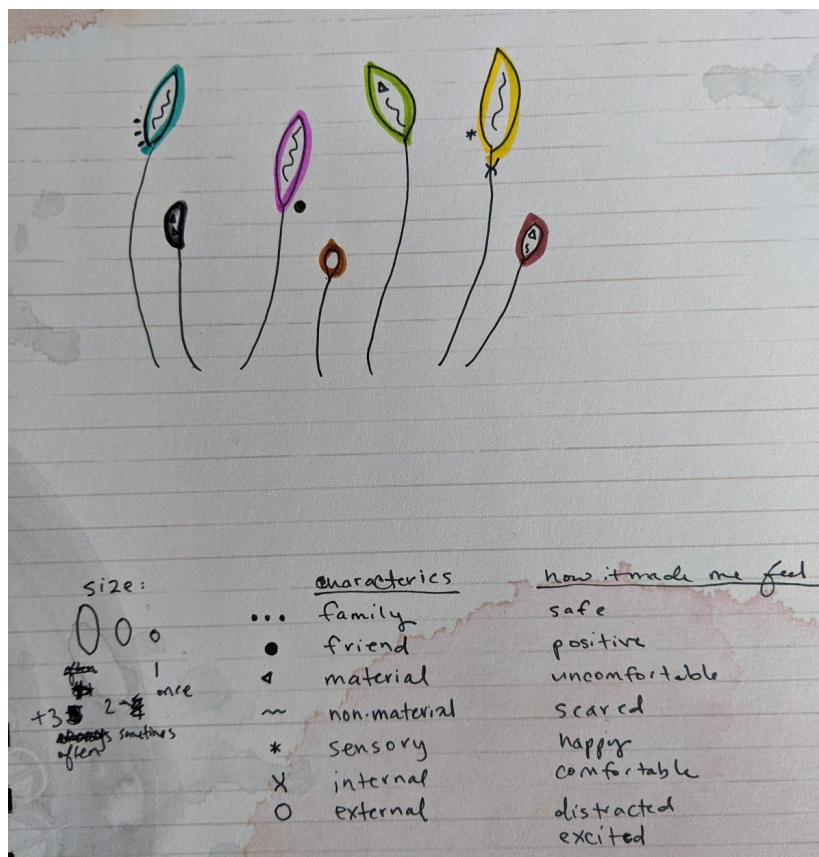 size:
1
once
+3
2-
sometimes
often
characterics
family
friend
material
non-material
sensory
internal
external
how it made me feel
safe
positive
uncomfortable
scared
happy
comfortable
distracted
excited